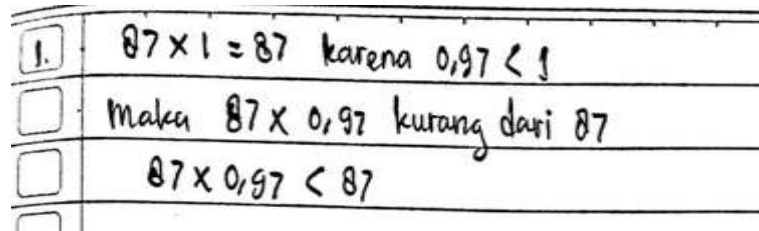 1. 87 × 1 = 87 karena 0,97 < 1
Maka 87 × 0,97 kurang dari 87
87 × 0,97 < 87